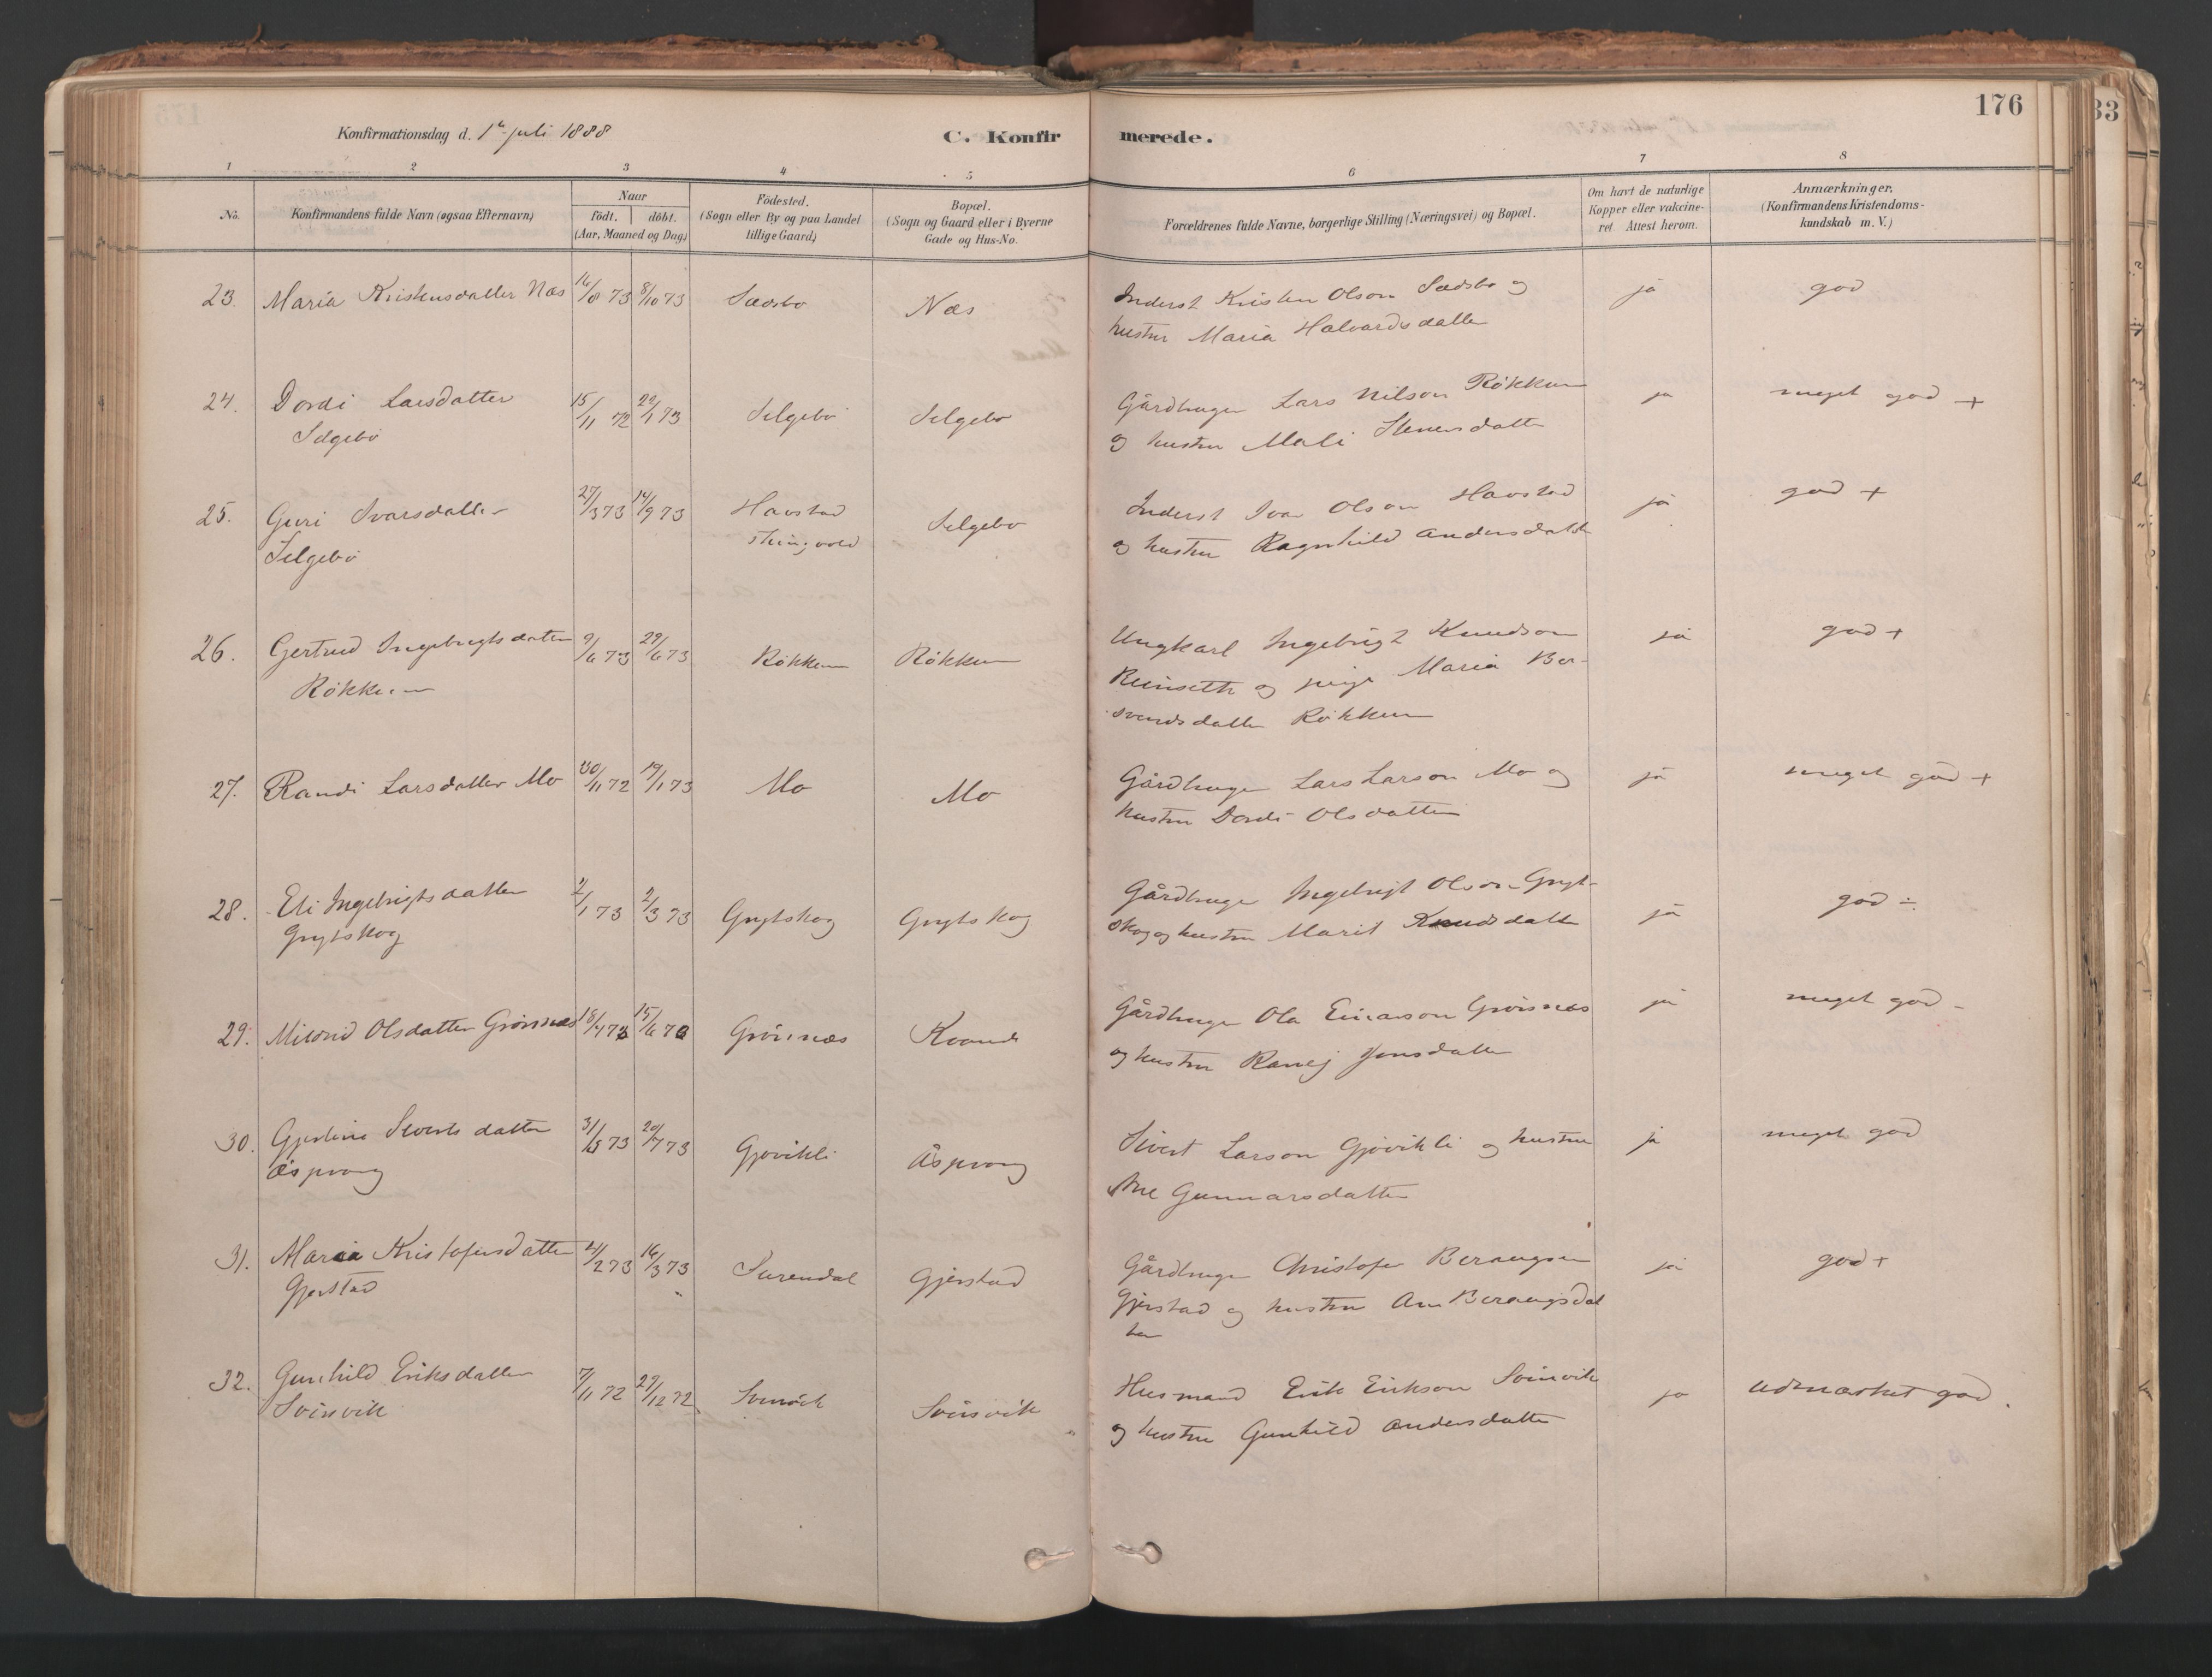 176
Konfirmationsdag d. 1ste juli 1888
C. Konfirmerede.
1 2 3 4 5 6 7 8
No.
Konfirmandens fulde Navn (ogsaa Efternavn)
Naar
födt. döbt.
(Aar, Maaned og Dag)
Födested.
(Sogn eller By og paa Landet
tillige Gaard)
Bopæl.
(Sogn og Gaard eller i Byerne
Gade og Hus-No.
Forældrenes fulde Navne, borgerlige Stilling (Næringsvei) og Bopæl.
Om havt de naturlige
Kopper eller vakcine-
ret Attest herom.
Anmærkninger.
(Konfirmandens Kristendoms-
kundskab m. V.)
23. Maria Kristensdatter Næs 16/8 73 8/10 73 Sædsbø Næs Inderst Kristen Olson Sædsbø og ja god
hustru Maria Halvardsdatter
24. Dordi Larsdatter 15/11 72 22/1 73 Selgebö Selgebö Gårdbruger Lars Nilson Røkkum ja meget god +
Selgebö og hustru Mali Stenersdatter
25. Guri Ivarsdatter 27/3 73 14/9 73 Havstad Selgebö Inderst Ivar Olson Havstad ja god +
Selgebö Thingvold og hustru Ragnhild Andersdatter
26. Gertrud Ingebrigtsdatter 9/6 73 29/6 73 Røkkum Røkkum Ungkarl Ingebrigt Knudson ja god +
Røkkum Reinseth og pige Maria Ber-
svendsdatter Røkkum
27. Randi Larsdatter Mo 30/11 72 19/1 73 Mo Mo Gårdbruger Lars Larson Mo og ja meget god +
hustru Dordi Olsdatter
28. Eli Ingebrigtsdatter 2/1 73 2/3 73 Grytskog Grytskog Gårdbruger Ingebrigt Olson Gryt- ja god ÷
Grytskog skog og hustru Marit Knudsdatter
29. Mildrid Olsdatter Grönnæs 18/4 73 15/6 73 Grönnæs Kvande Gårdbruger Ola Einarson Grönnæs ja meget god -
og hustru Ranej Jonsdatter
30. Gjertine Sivertsdatter 31/5 73 20/7 73 Gjøvikli Åsprong Sivert Larson Gjøvikli og hustru ja meget god
Åsprong Ane Gunnarsdatter
31. Maria Kristofersdatter 4/2 73 16/3 73 Surendal Gjerstad Gårdbruger Christofer Beraugsen ja god +
Gjerstad Gjerstad og hustru Ane Beraugsdat
ter
32. Gunhild Eriksdatter 7/11 72 29/12 72 Svinvik Svinvik Husmand Erik Erikson Svinvik ja udmærket god.
Svinvik og hustru Gunhild Andersdatter